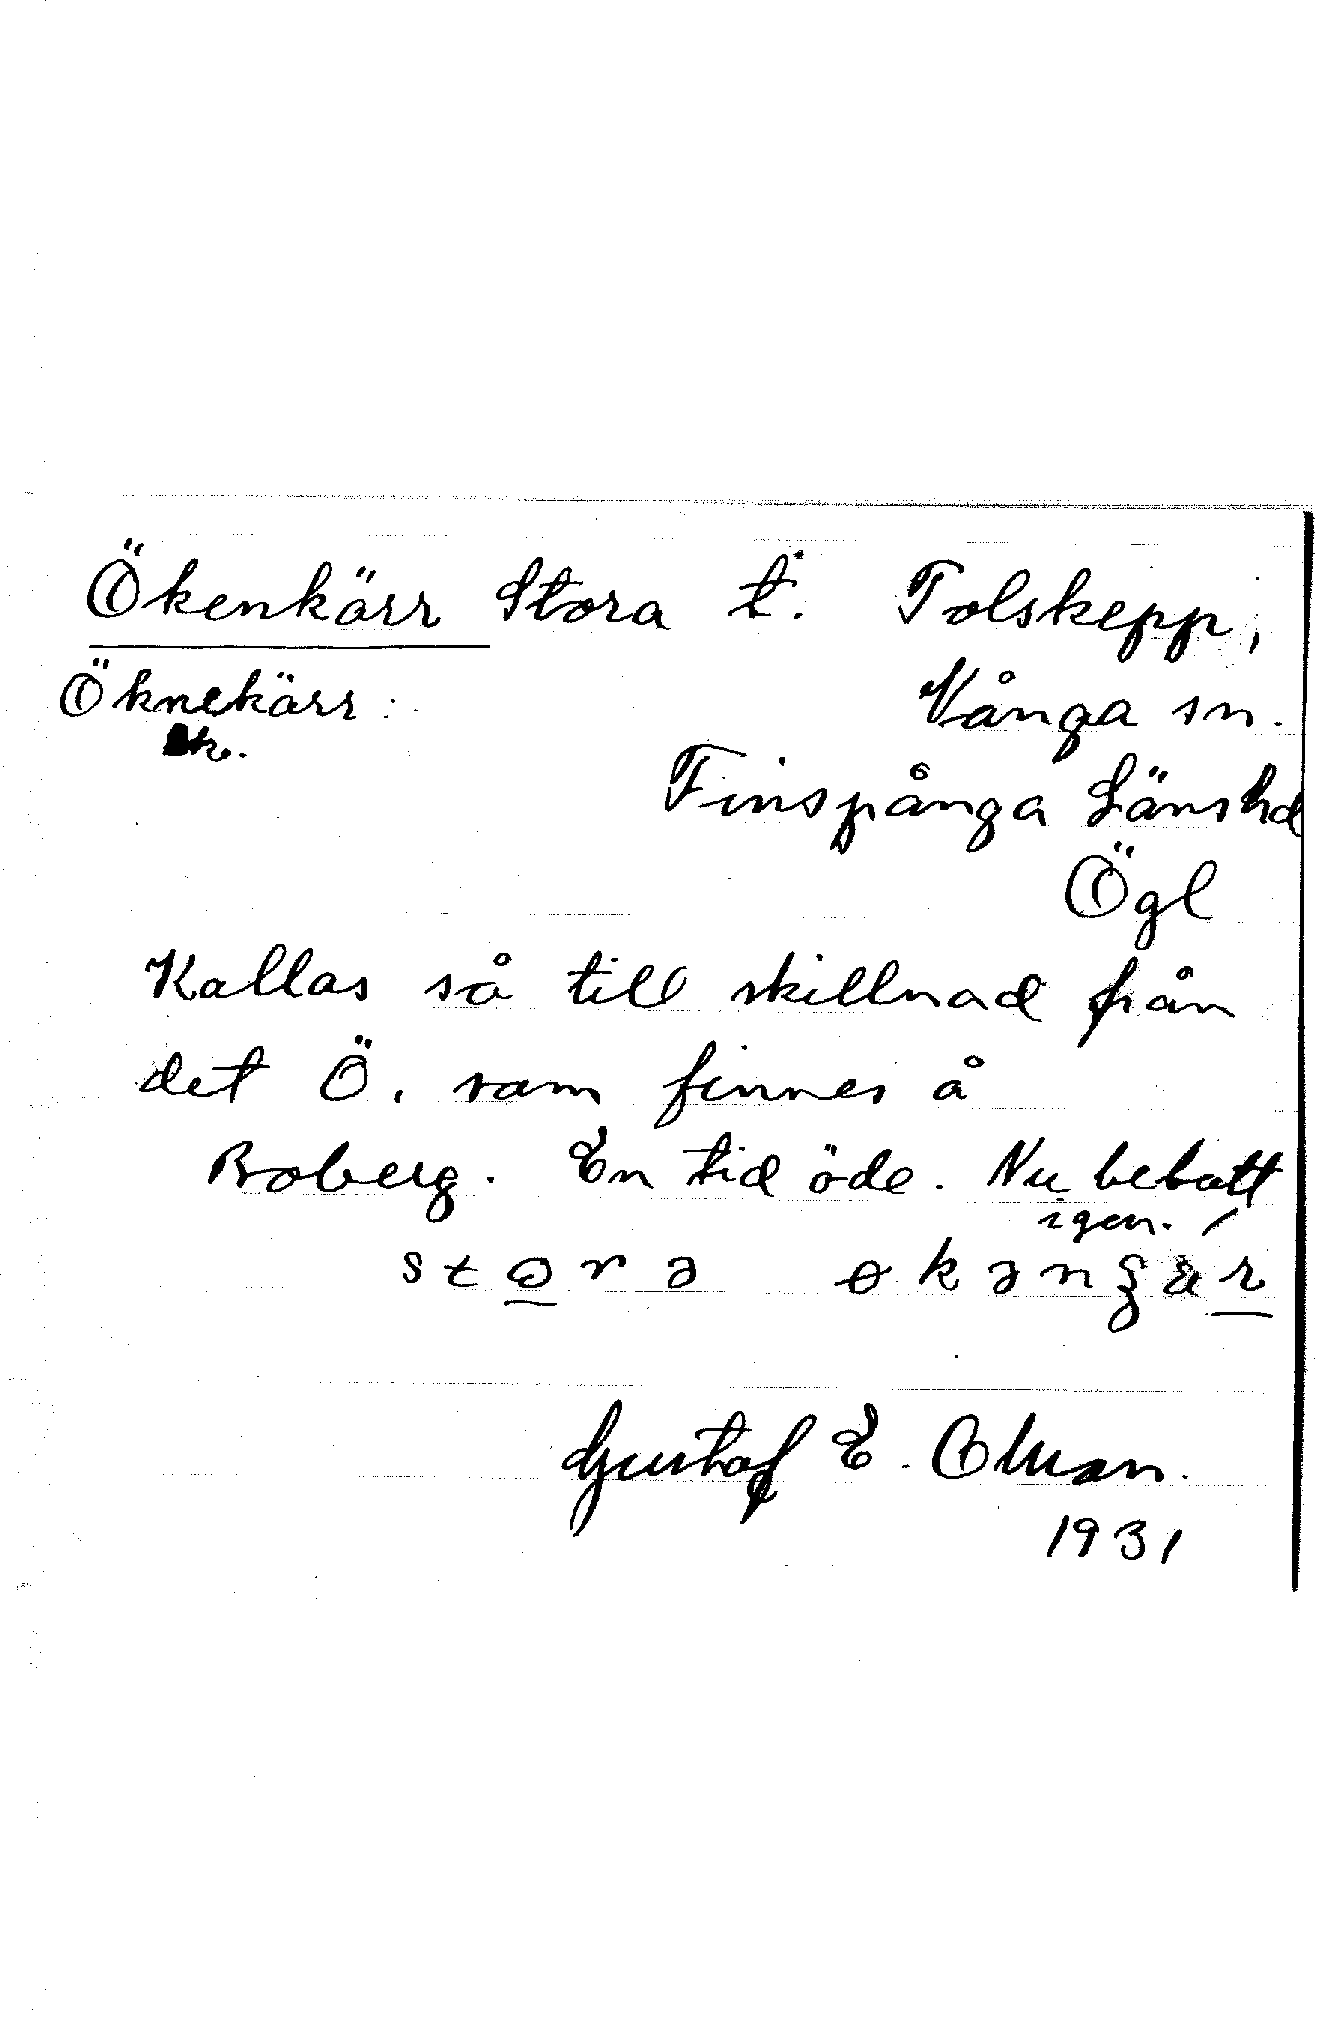 Ökenkärr Stora t. Tolskepp,
Öknekärr: Vånga sn.
ek.
Finspånga Länshd
Ögl
Kallas så till skillnad från
det Ö. som finnes å
Boberg. En tid öde. Nu bebott
igen.
stora økəngär
Gustaf E. Olsson.
1931